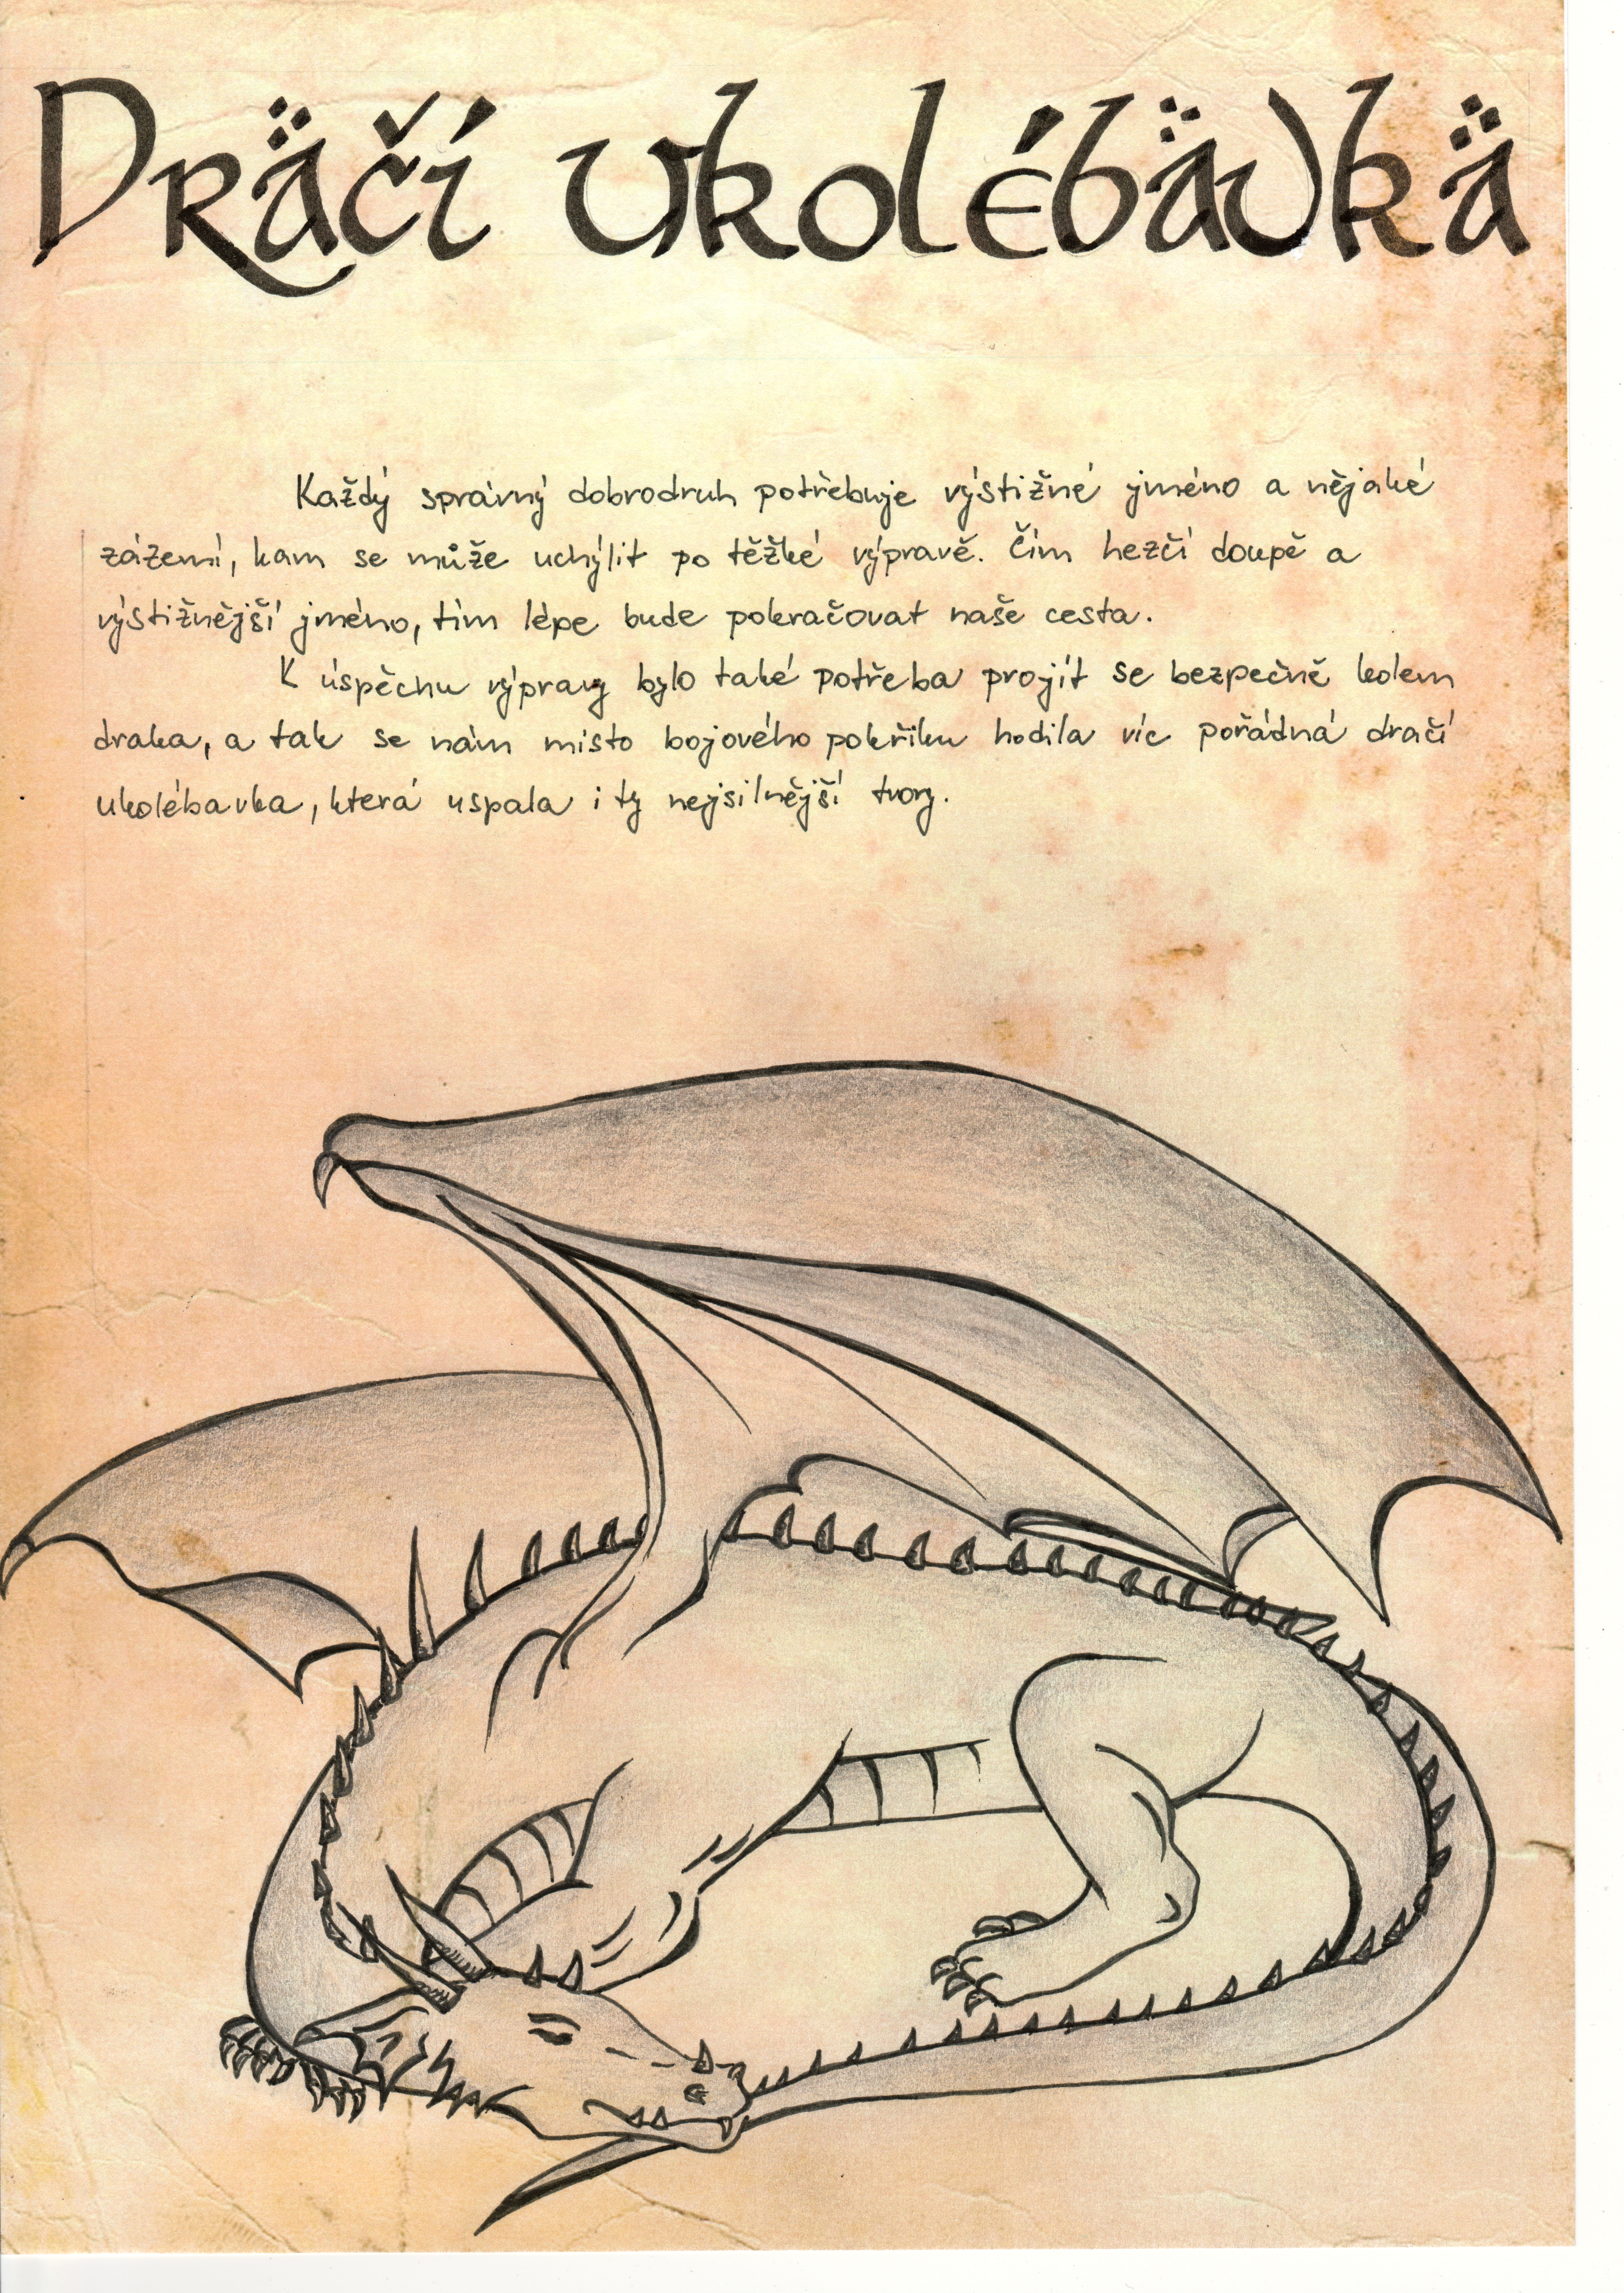 Dräčí ukolébävkä
Každý správný dobrodruh potřebuje výstižné jméno a nějaké
zázemí, kam se může uchýlit po těžké výpravě. Čím hezčí doupě a
výstižnější jméno, tím lépe bude pokračovat naše cesta.
K úspěchu výpravy bylo také potřeba projít se bezpečně kolem
draka, a tak se nám místo bojového pokřiku hodila víc pořádná dračí
ukolébavka, která uspala i ty nejsilnější tvory.